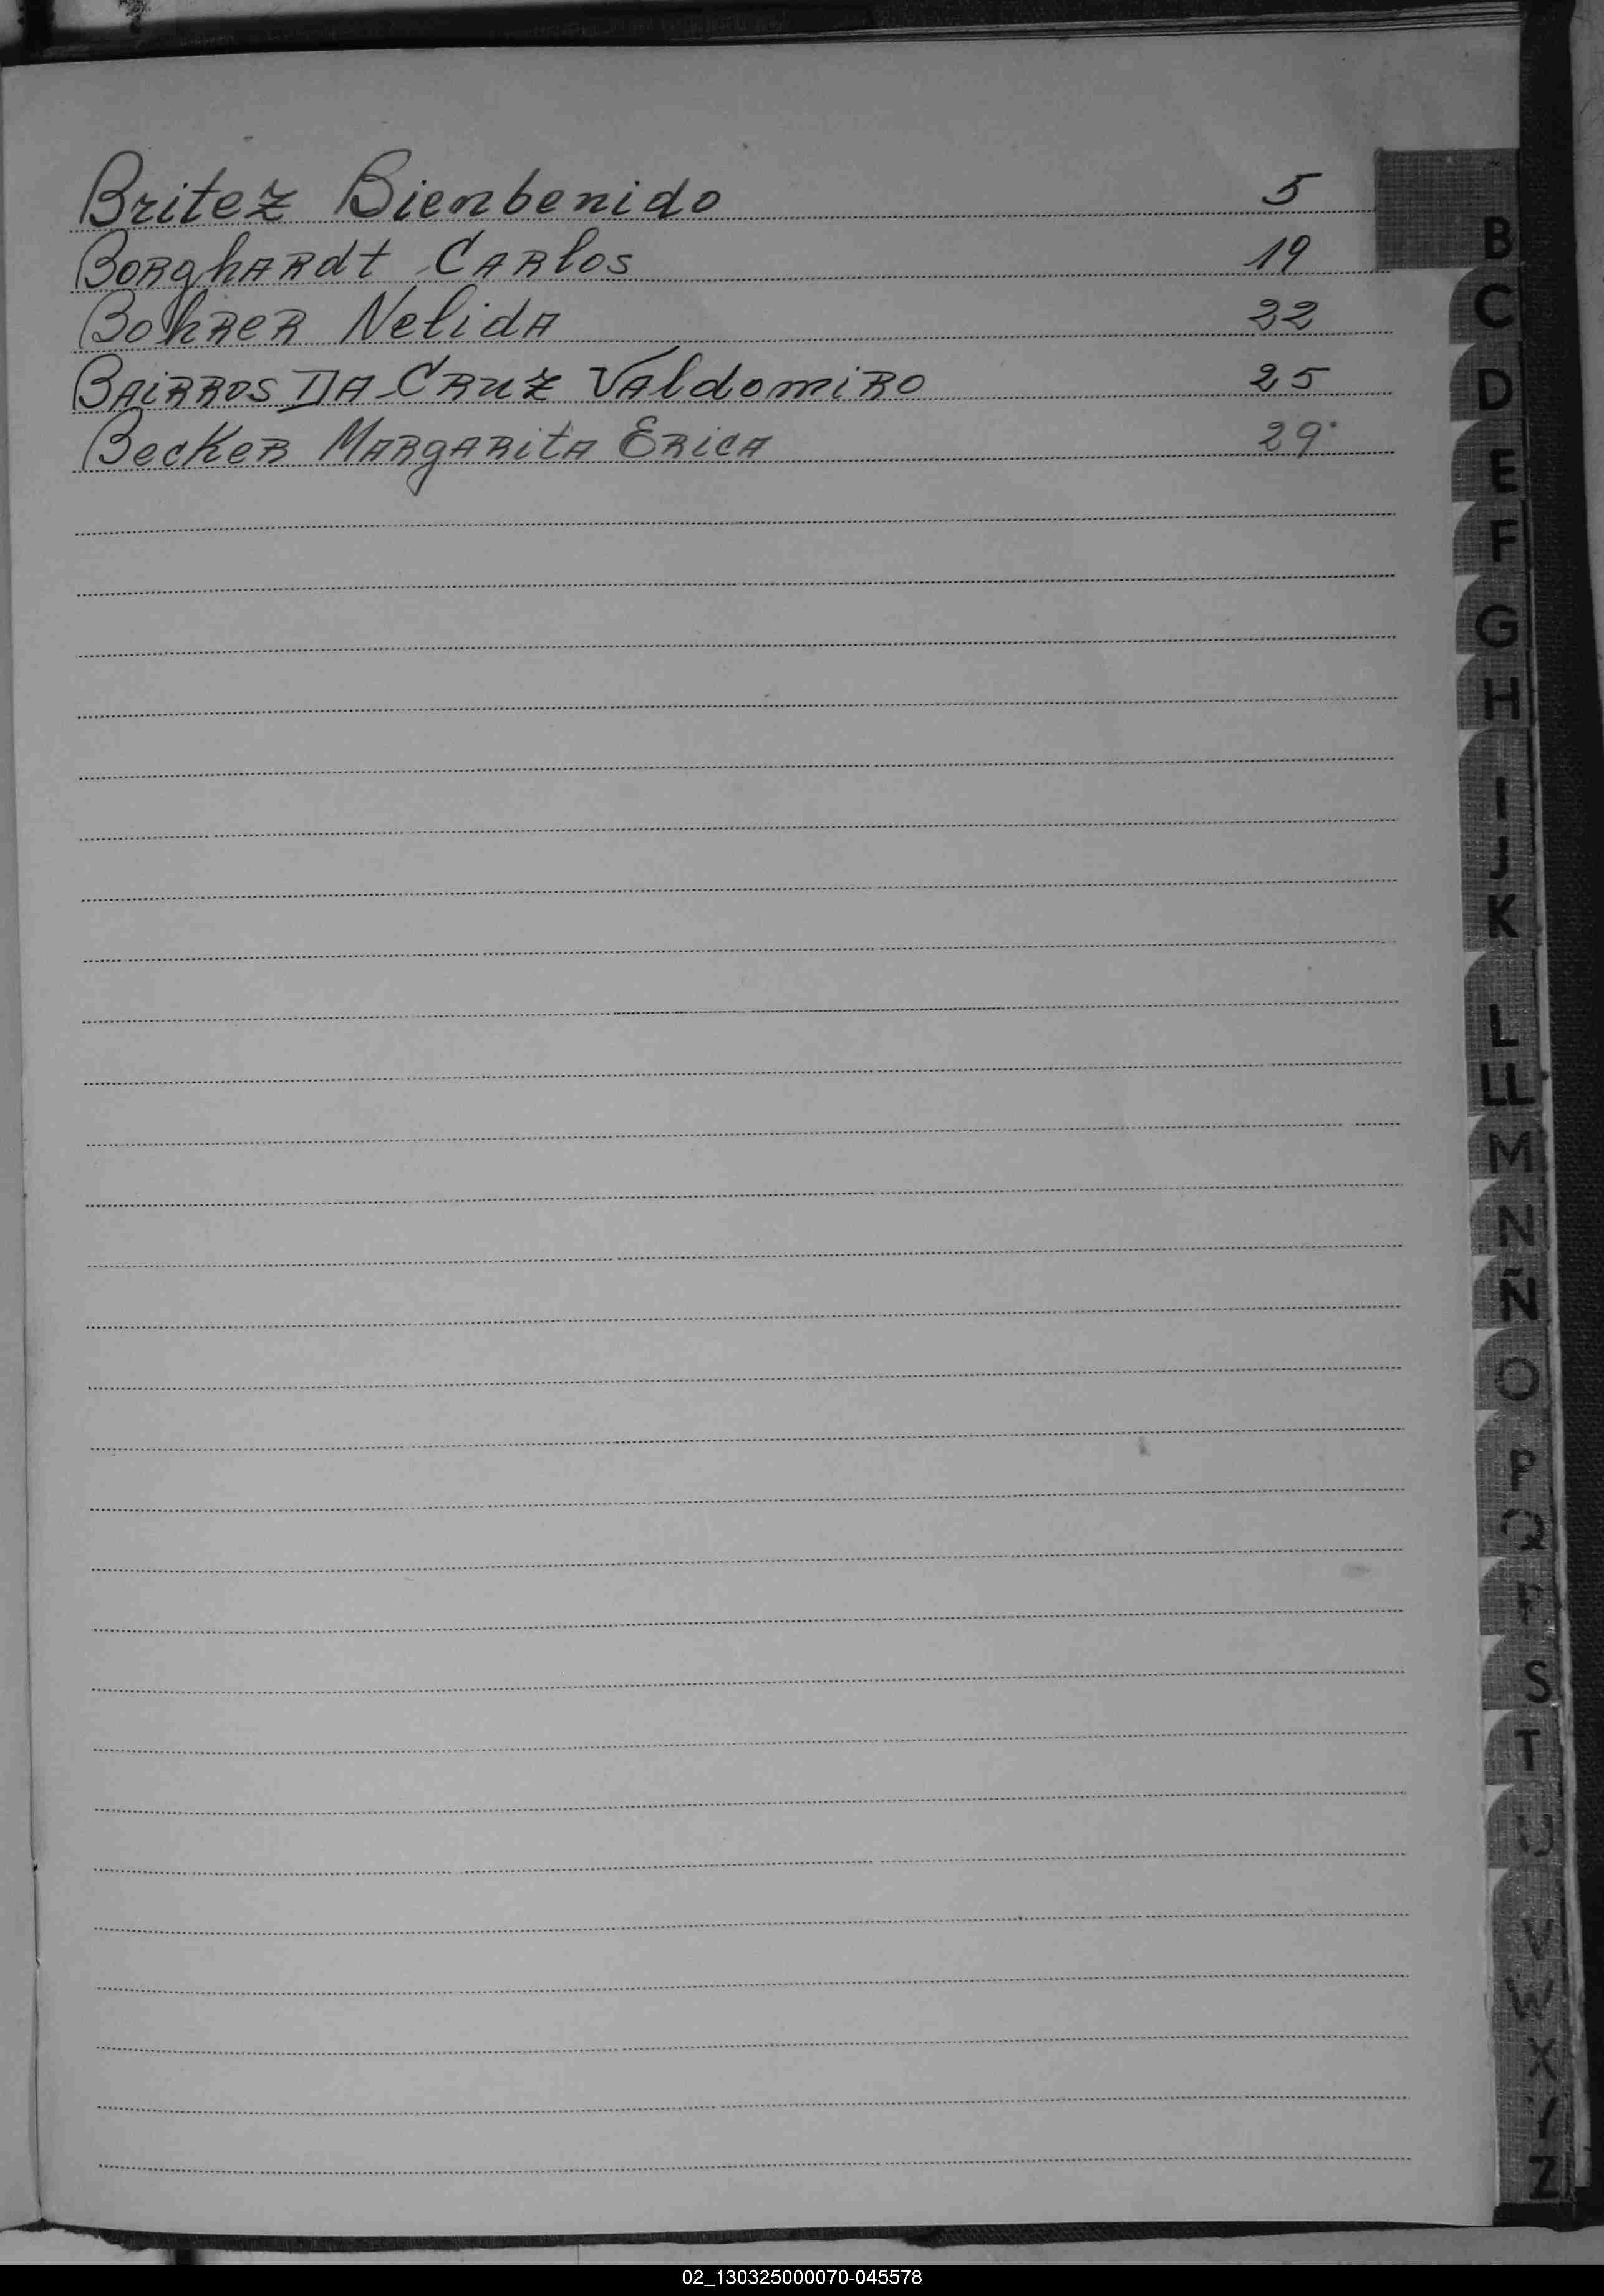 Britez Bienbenido 5
Borghardt Carlos 19
Bohrer Nelida 22
Bairros Da Cruz Valdomiro 25
Becker Margarita Erica 29
B
C
D
E
F
G
H
I
J
K
L
LL
M
N
Ñ
O
P
Q
R
S
T
U
V
W
X
Y
Z
02_130325000070-045578